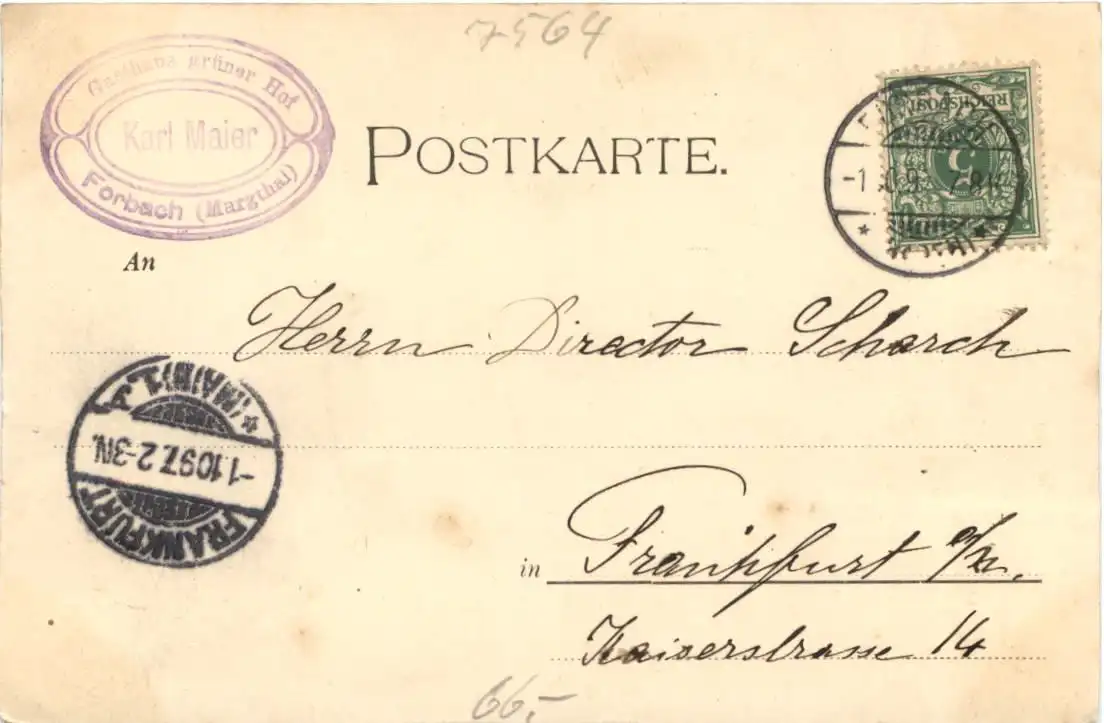 7564
Gasthaus grüner Hof
Karl Maier
Forbach (Murgthal)
POSTKARTE.
REICHSPOST
5
7-8V.
An
Herrn Director Scharch
FRANKFURT
-1.10 97. 2-3N.
* (MAIN) 1. A
in Frankfurt a/M.
Kaiserstrasse 14
66,-